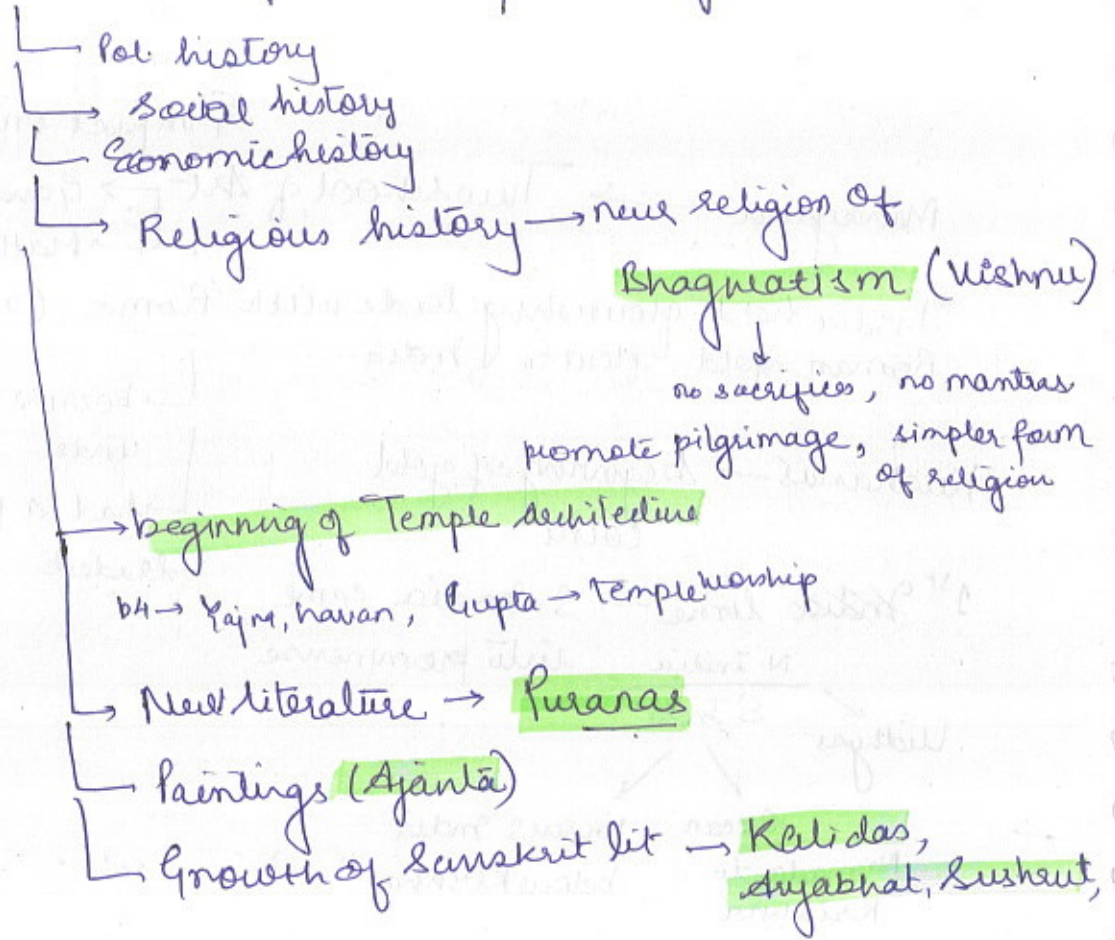 Pol. history
Social history
Economic history
Religious history → new religion of
Bhagwatism (Vishnu)
no sacrifices, no mantras
promote pilgrimage, simpler form
of religion
beginning of Temple Architecture
b4 → Yajna, havan, Gupta → Temple worship
New literature → Puranas
Paintings (Ajanta)
Growth of Sanskrit lit → Kalidas,
Aryabhat, Sushrut,